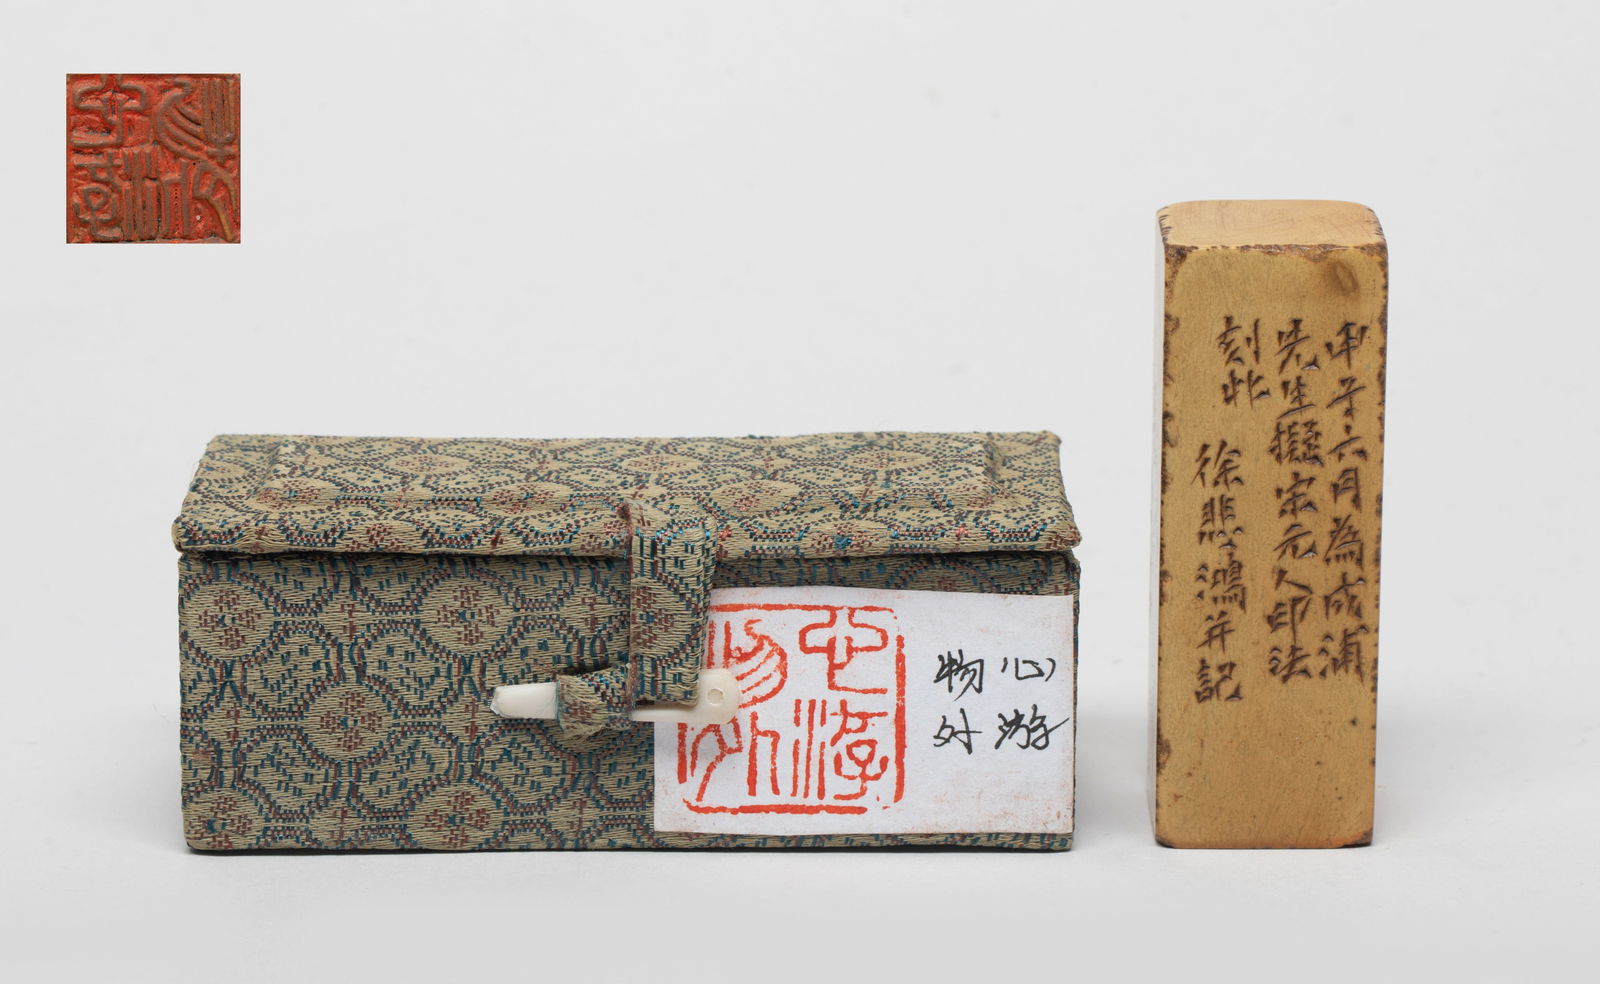 心游
物外
心游
物外
甲子六月為成浦
先生擬宋元人印法
刻此
徐悲鴻并記